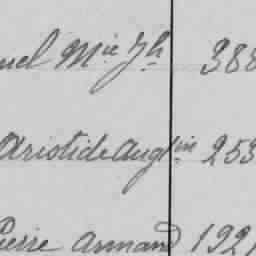 uel Mie Jh 388
Aristide Augtin 253
Pierre Armand 1221